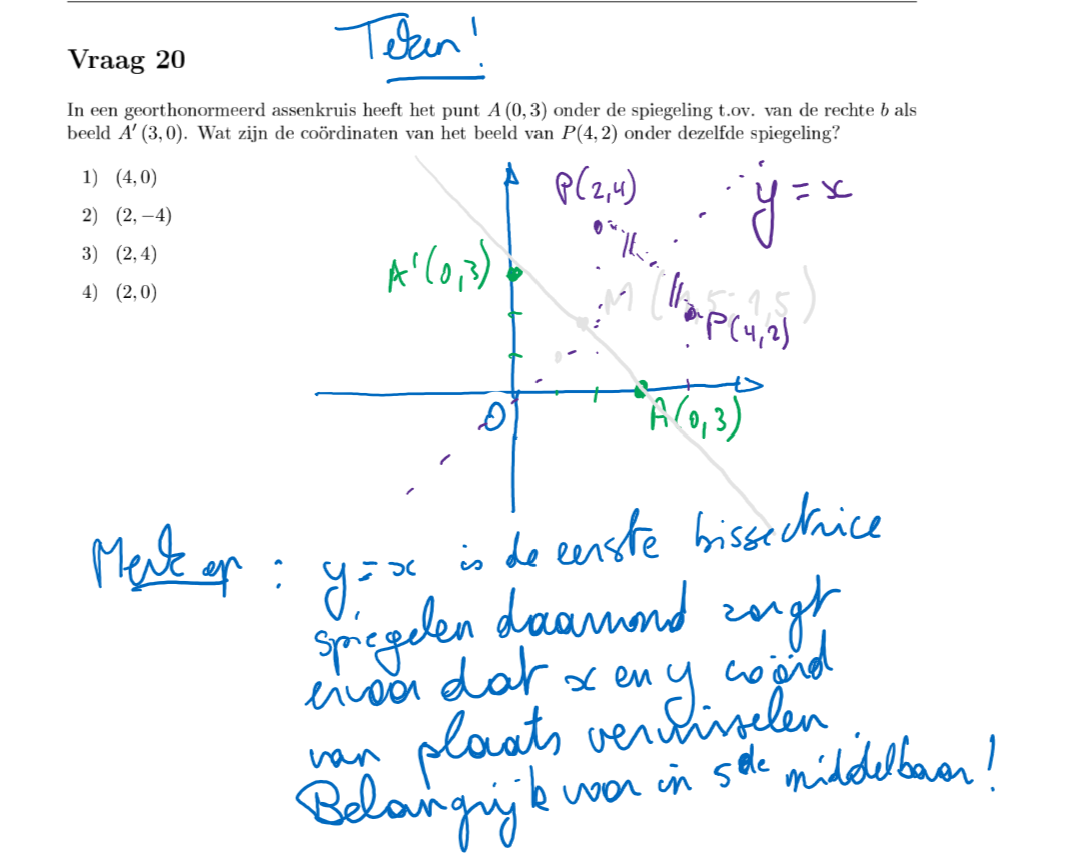 Teken!
Vraag 20
In een georthonormeerd assenkruis heeft het punt A (0, 3) onder de spiegeling t.ov. van de rechte b als
beeld A′ (3, 0). Wat zijn de coördinaten van het beeld van P(4, 2) onder dezelfde spiegeling?
1) (4, 0)
2) (2, −4)
3) (2, 4)
4) (2, 0)
P(2,4)
y = x
A'(0,3)
M (1,5; 1,5)
P(4,2)
O
A(0,3)
Merk op : y = x is de eerste bissectrice
spiegelen daarrond zorgt
ervoor dat x en y coörd
van plaats verwisselen
Belangrijk voor in 5de middelbaar!